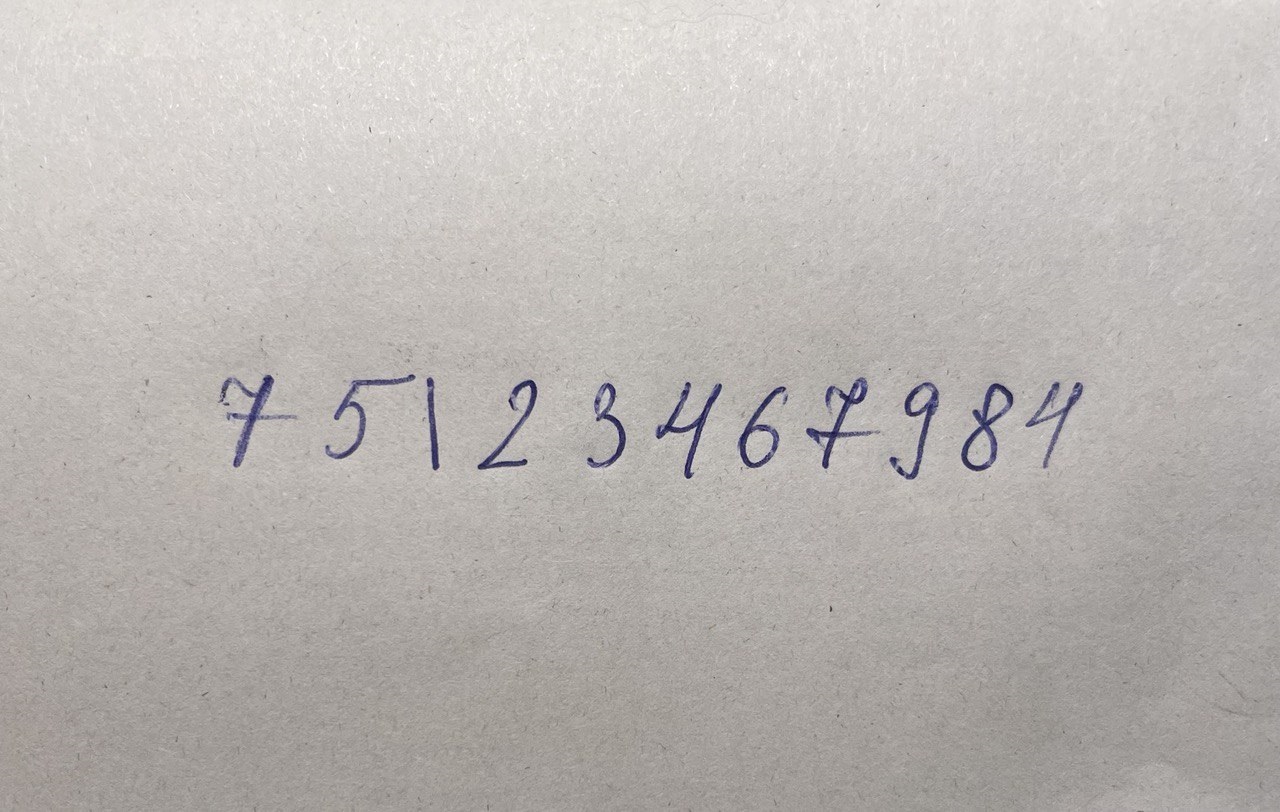 7 5 1 2 3 4 6 7 9 8 4